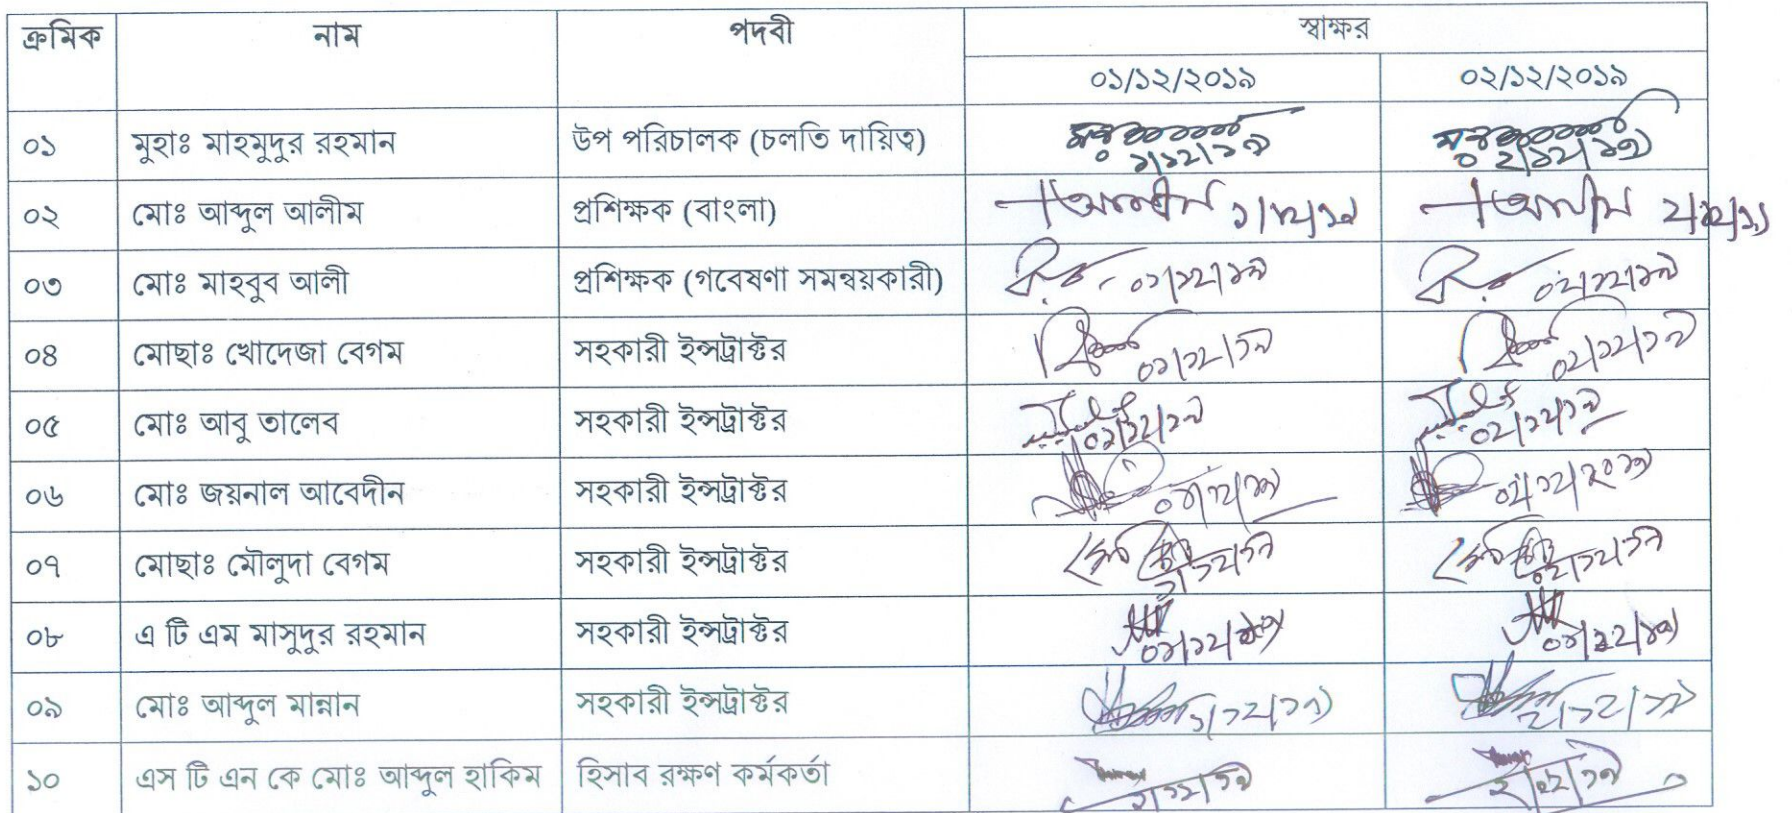 ক্রমিক নাম পদবী স্বাক্ষর
০১/১২/২০১৯ ০২/১২/২০১৯
০১ মুহাঃ মাহমুদুর রহমান উপ পরিচালক (চলতি দায়িত্ব) ০১/১২/১৯ ০২/১২/১৯
০২ মোঃ আব্দুল আলীম প্রশিক্ষক (বাংলা) আলীম ১/১২/১৯ আলীম ২/১২/১৯
০৩ মোঃ মাহবুব আলী প্রশিক্ষক (গবেষণা সমন্বয়কারী) ০১/১২/১৯ ০২/১২/১৯
০৪ মোছাঃ খোদেজা বেগম সহকারী ইন্সট্রাক্টর ০১/১২/১৯ ০২/১২/১৯
০৫ মোঃ আবু তালেব সহকারী ইন্সট্রাক্টর ০১/১২/১৯ ০২/১২/১৯
০৬ মোঃ জয়নাল আবেদীন সহকারী ইন্সট্রাক্টর ০১/১২/১৯ ০২/১২/২০১৯
০৭ মোছাঃ মৌলুদা বেগম সহকারী ইন্সট্রাক্টর ১/১২/১৯ ০২/১২/১৯
০৮ এ টি এম মাসুদুর রহমান সহকারী ইন্সট্রাক্টর ০১/১২/১৯
০৯ মোঃ আব্দুল মান্নান সহকারী ইন্সট্রাক্টর ১/১২/১৯ ২/১২/১৯
১০ এস টি এন কে মোঃ আব্দুল হাকিম হিসাব রক্ষণ কর্মকর্তা ১/১২/১৯ ২/১২/১৯